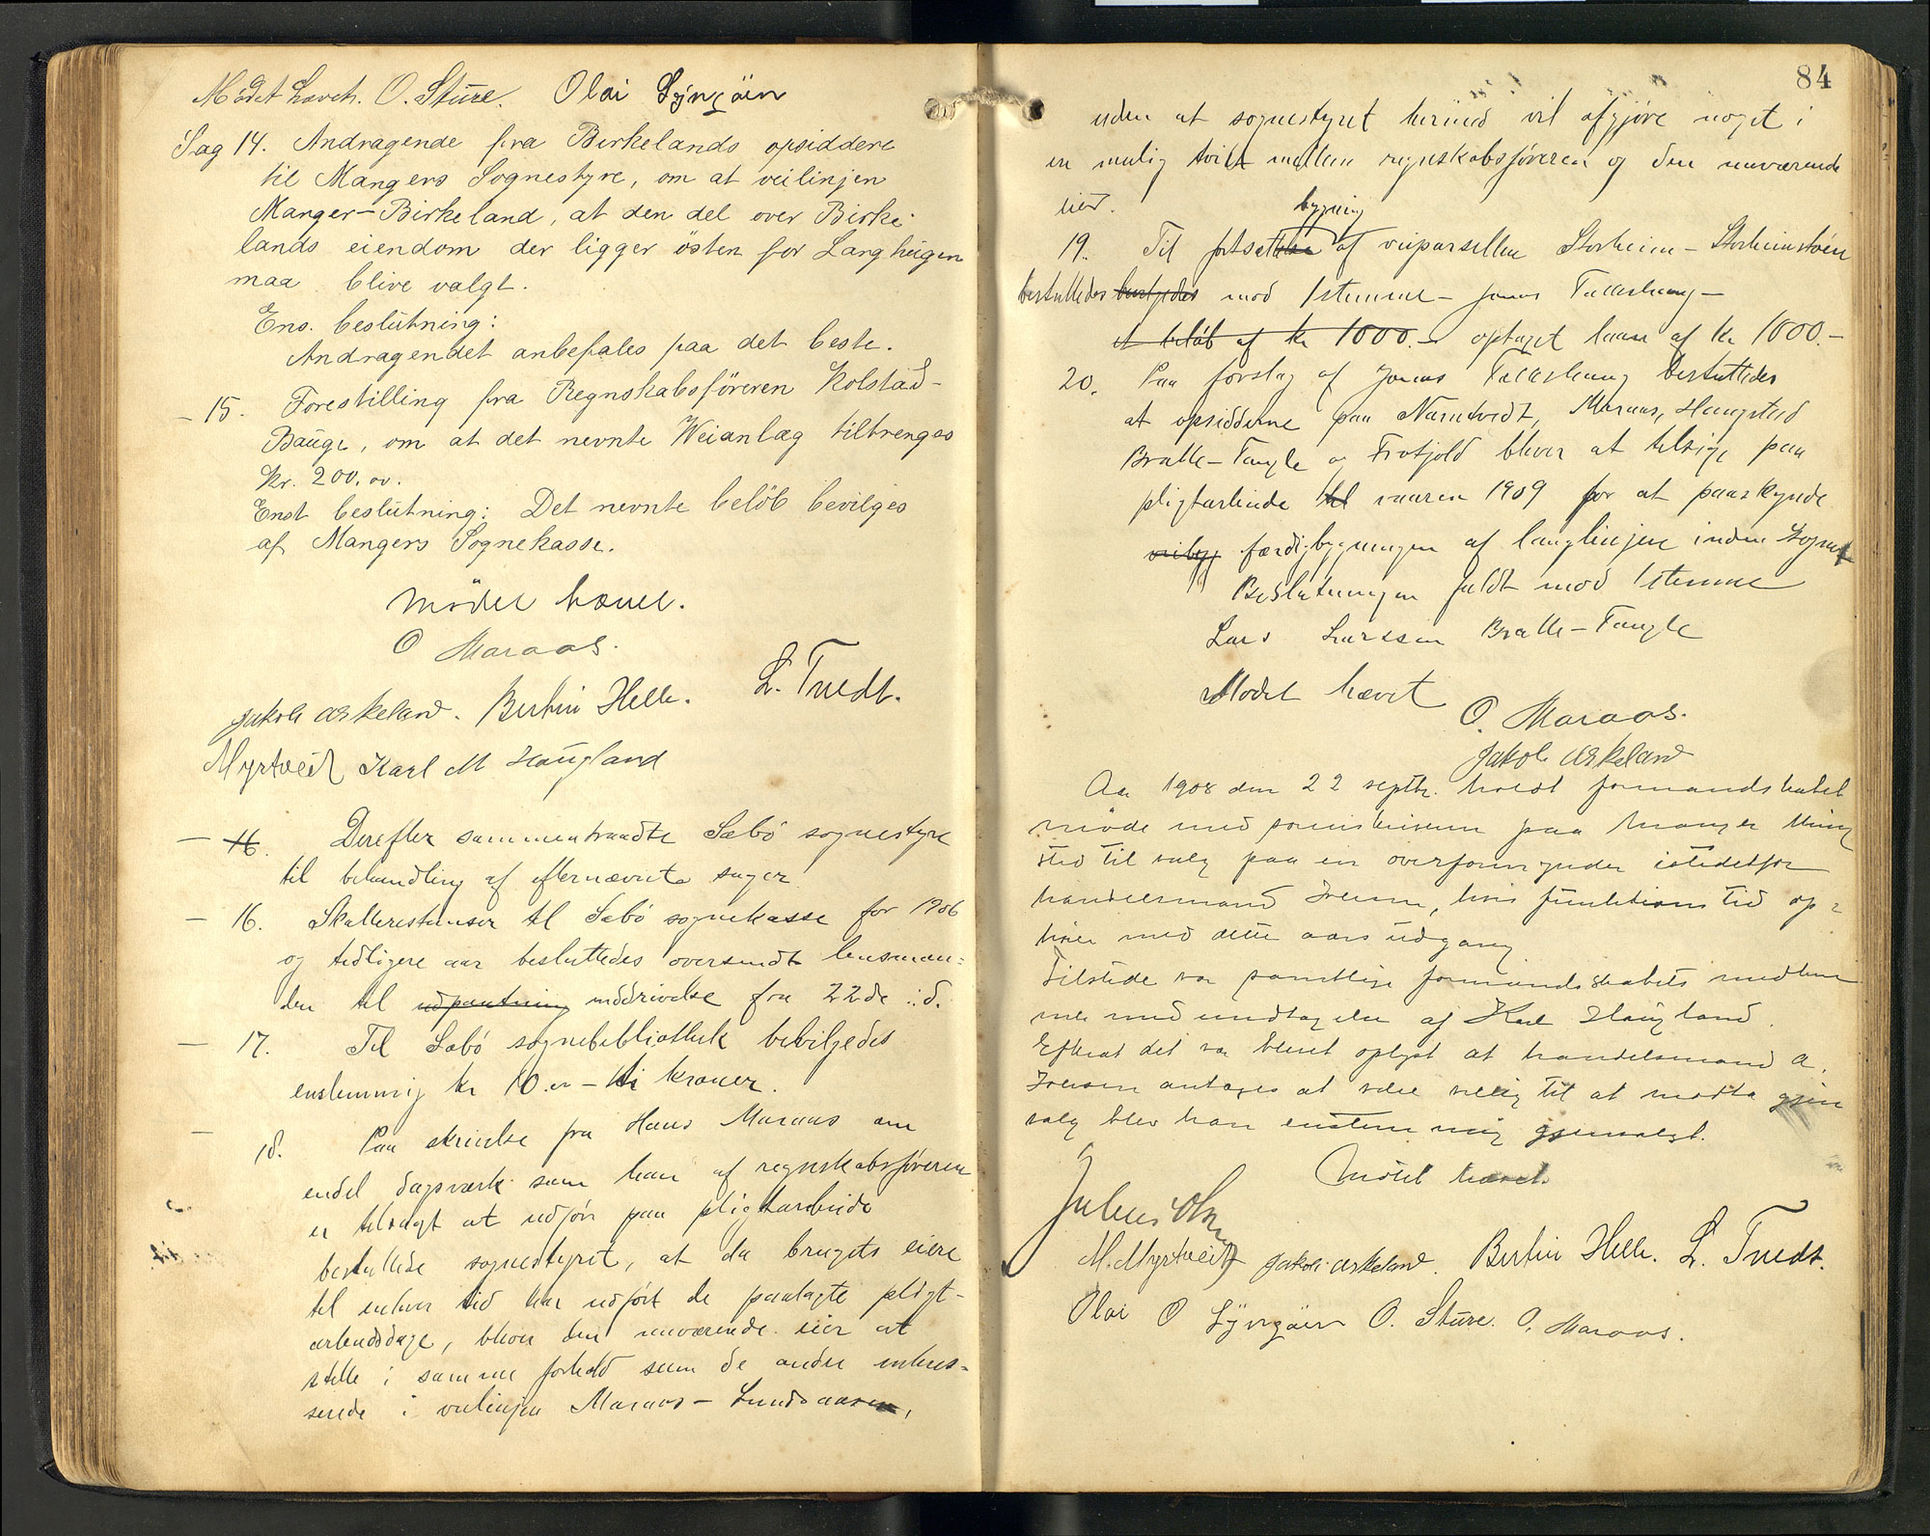 Mödet hævet. O. Sture. Olai Lÿngöien
Sag 14. Andragende fra Birkelands opsiddere
til Mangers Sognestyre, om at veilinjen
Manger-Birkeland, at den del over Birke-
lands eiendom der ligger östen for Langhügen
maa blive valgt.
Ens. beslütning:
Andragendet anbefales paa det beste.
- 15. Forestilling fra Regnskabsföreren Kolstad-
Baüge, om at det nevnte Weianlæg tiltrenges
kr. 200.00.
Enst beslütning: Det nevnte belöb bevilges
af Mangers Sognekasse.
Mödet hævet.
O Maraas.
L. Tvedt.
Jakob Askeland. Bertin Helle.
Myrtveit Karl M Haügland
- 16. Derefter sammentraadte Sæbö sognestyre
til behandling af efternævnte sager
- 16. Skatterestanser til Sæbö sognekasse for 1906
og tidligere aar besluttedes oversendt lensman=
den til udpantning inddrivelse fra 22de i.d.
- 17. Til Sæbö sognebibliothek bevilgedes
enstemmig kr 10.00 - ti kroner.
- 18. Paa skrivelse fra Hans Maraas om
endel dagsværk som han af regnskabsföreren
er tilsagt at udföre paa pligtarbeide
besluttede sognestyret, at da brugets eiere
til enhver tid har udfört de paalagte pligt-
arbeidsdage, bliver den nuværende eier at
stille i samme forhold som de andre interes=
serede i veilinjen Maraas - Lundsaasen,
84
uden at sognestyret herved vil afgjöre noget i
en mulig tvist mellem regnskabsföreren og den nuværende
eier.
bygning
19. Til fortsættelse af veiparsellen Storheim - Storheimstöen
besluttedes bevilgedes mod 1 stemme - Jonas Tolleshaug -
et belöb af kr 1000.- optaget laan af kr 1000.-
20. Paa forslag af Jonas Tolleshaug besluttedes
at opsidderne paa Nærutvedt, Maraas, Haugstad
Bratte-Tangle og Frotjold bliver at tilsige paa
pligtarbeide til vaaren 1909 for at paaskynde
veibyg færdigbygningen af langlinjen inden Sognet
Beslutningen fuldt mod 1 stemme
Lars Larssen Bratte-Tangle
Mödet hævet
O. Maraas.
Jakob Askeland
Aar 1908 den 22 septbr. holdt formandskabet
möde med paa Manger thing
sted til valg paa en overformynder istedetfor
handelsmand Iversen, hvis funktions tid op=
hörer med dette aars udgang
Tilstede var samtlige formandskabets medlem
mer med undtagelse af Karl Haugland.
Efterat det var blevet oplyst at handelsmand A.
Iversen antages at være villig til at modta gjen
valg blev han enstemmig gjenvalgt.
Mödet hævet.
Julius Olsen
M. Myrtveit Jakob Askeland. Bertin Helle. L. Tvedt.
Olai O Lÿngöien O. Stüre. O. Maraas.